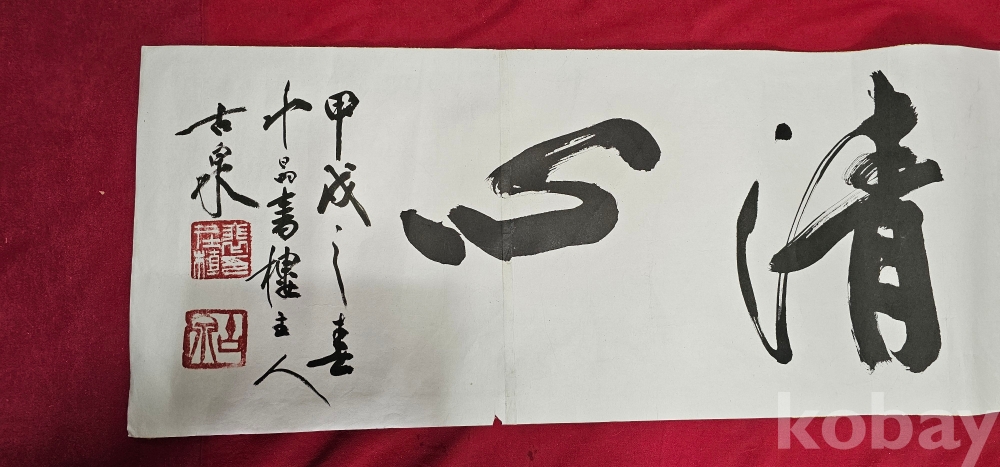 清心
甲戌之春
晶書樓主人
古泉
古泉
kobay